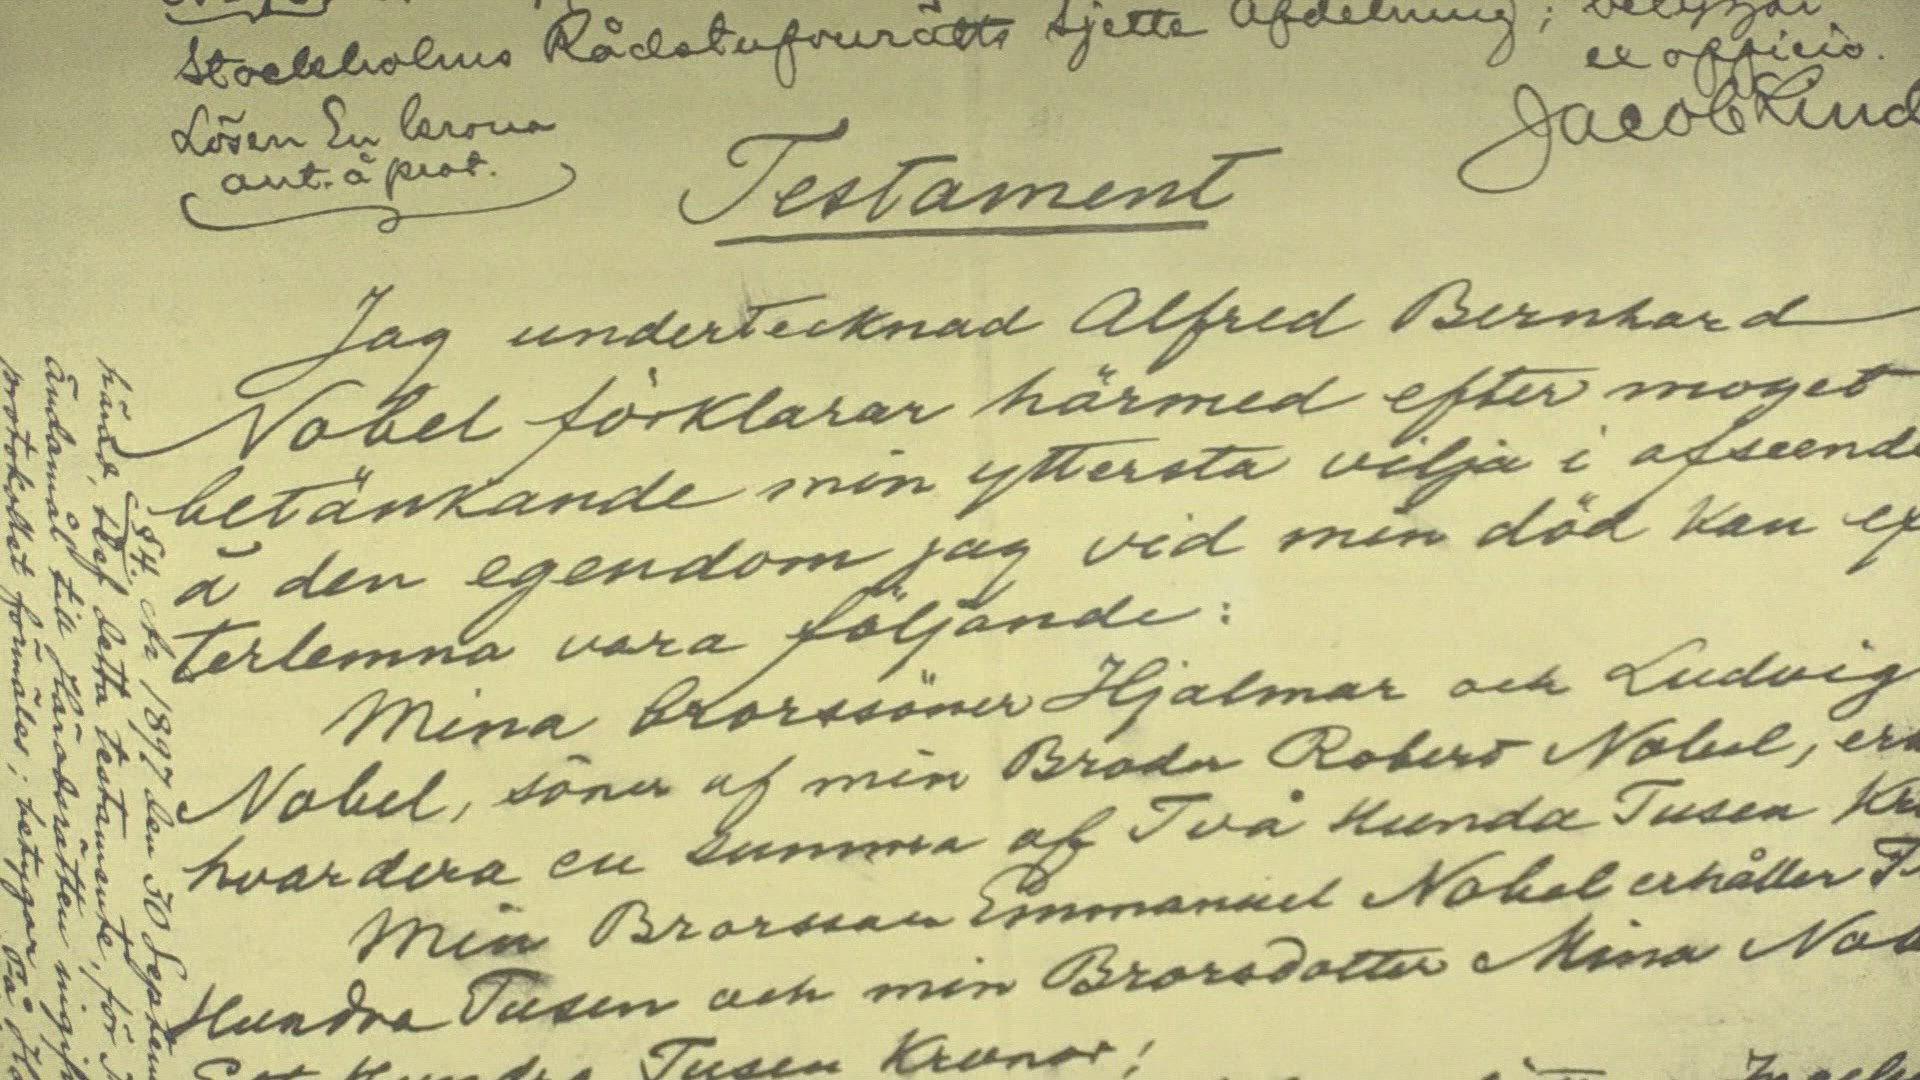 Stockholms Rådstufvurätts sjette Afdelning; betygar
ex officio.
Lösen En krona
ant. å prot.
Jacob Lind
Testament
Jag undertecknad Alfred Bernhard
Nobel förklarar härmed efter moget
betänkande min yttersta vilja i afseende
å den egendom jag vid min död kan ef
terlemna vara följande:
Mina brorssöner Hjalmar och Ludvig
Nobel, söner af min Broder Robert Nobel, er
hvardera en summa af Två Hundra Tusen Kr
Min Brorsson Emmanuel Nobel erhåller T
Hundra Tusen och min Brorsdotter Mina Nob
Ett Hundra Tusen Kronor;
§ 4. År 1897 den 30 Septem
händ, blef detta testamente, för
ändamål, till Häradsrätten ingif
protokollet förmäler; betygar På